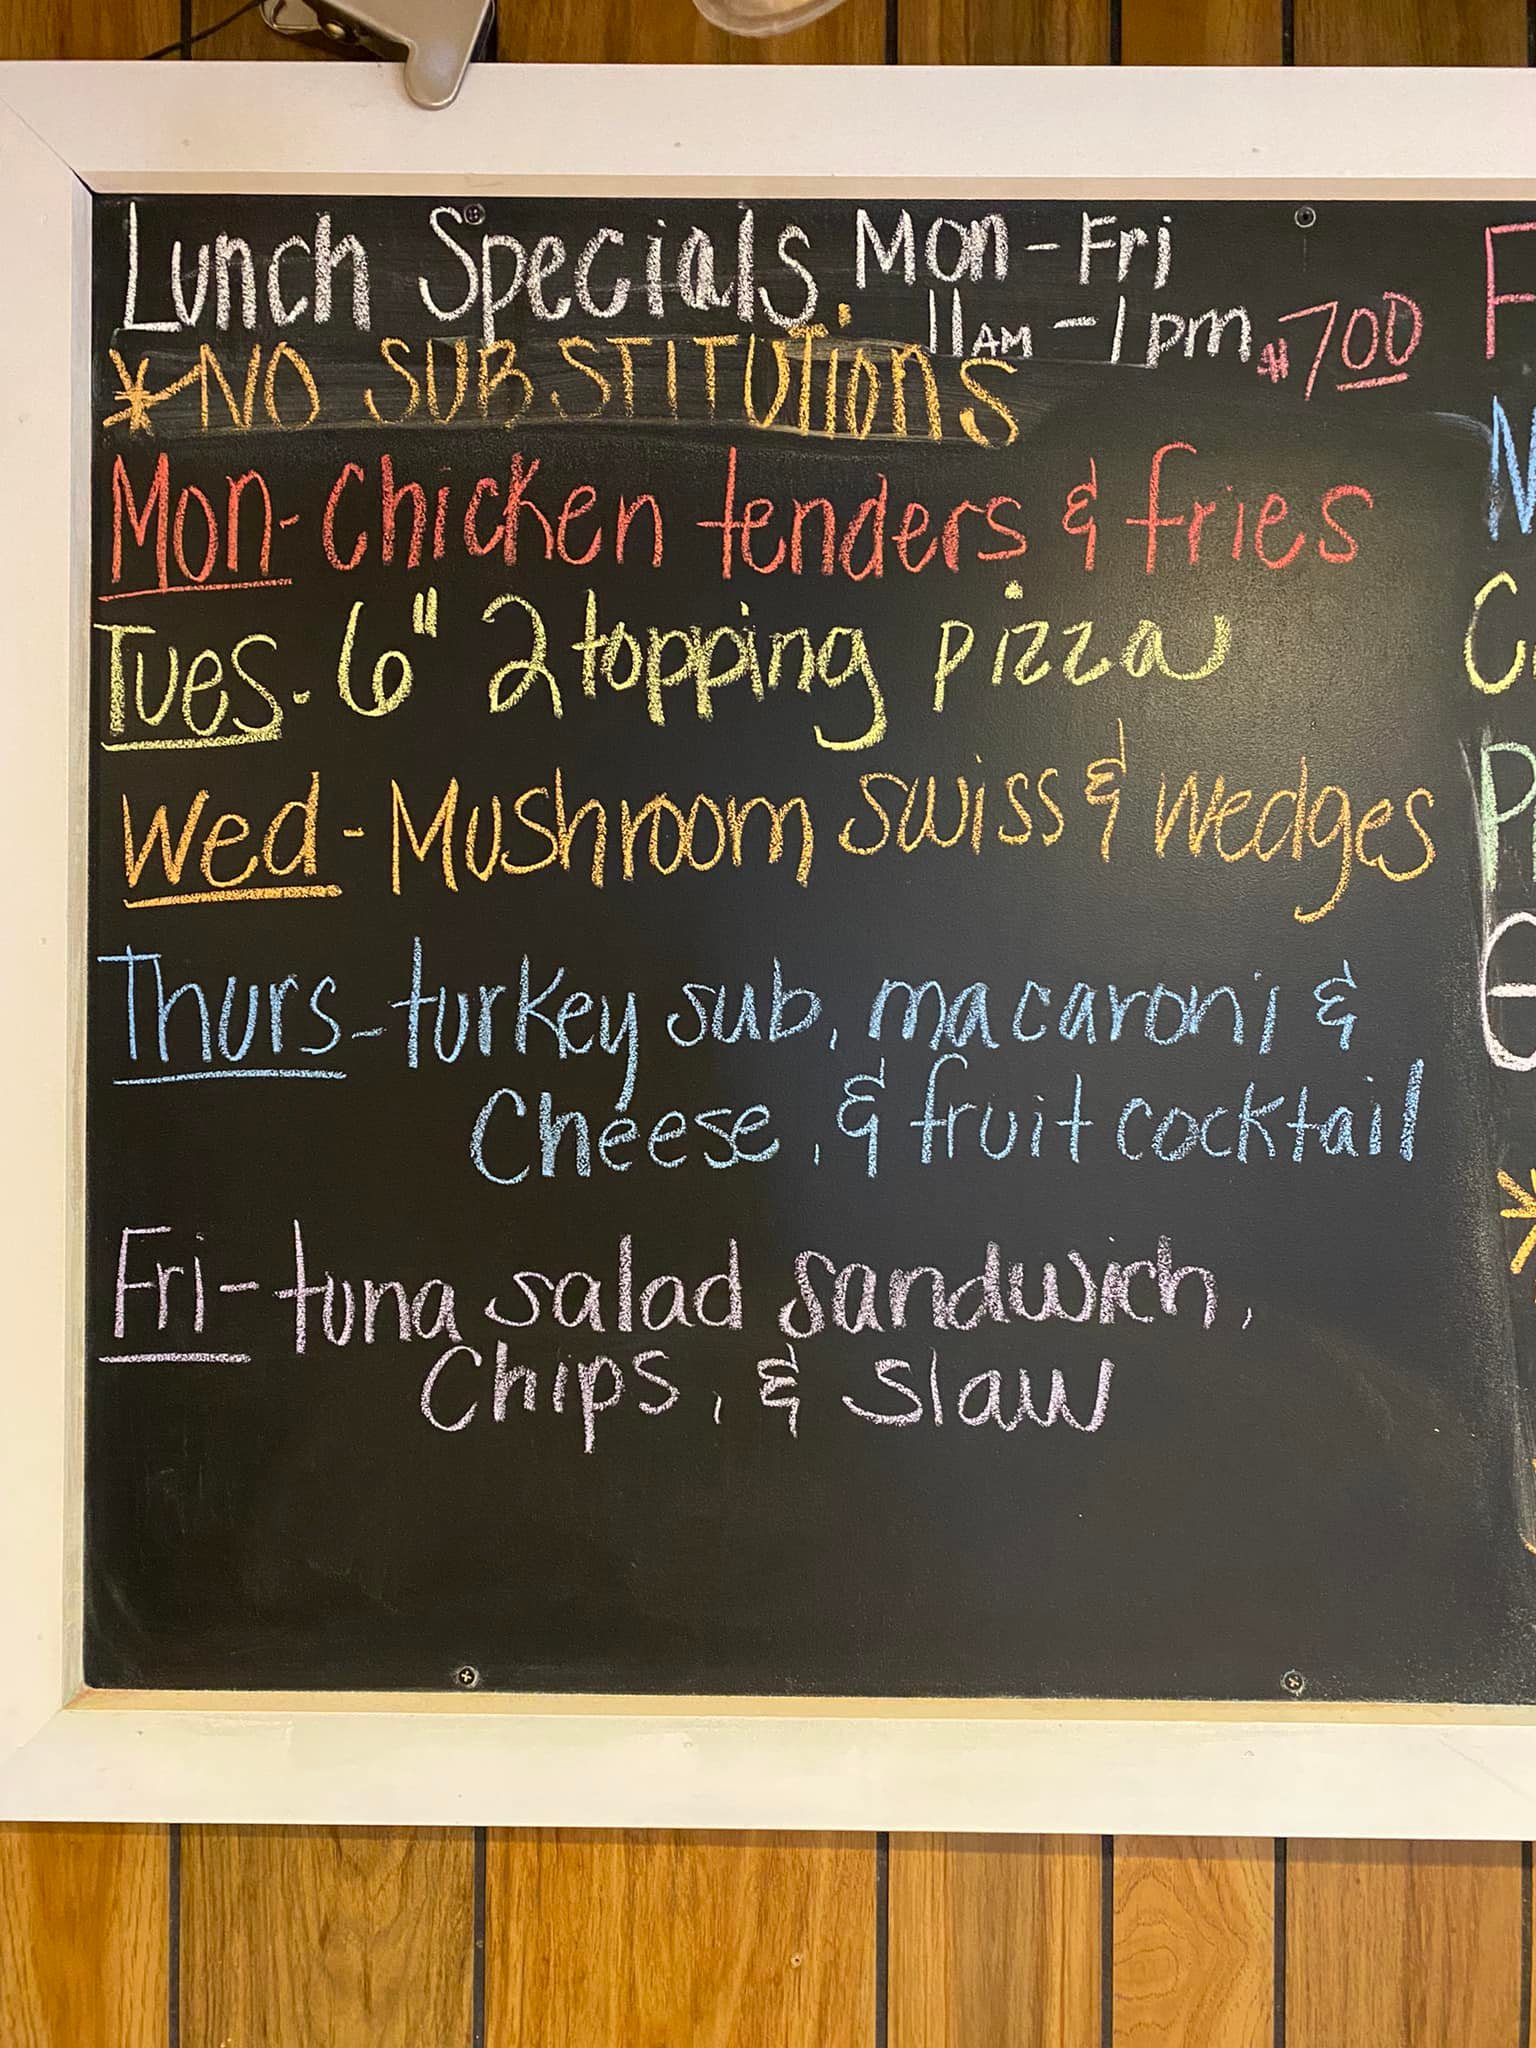 Lunch Specials Mon - Fri
11AM - 1pm $7.00
*NO SUBSTITUTIONS
Mon - Chicken tenders & fries
Tues. 6" 2 topping pizza
Wed - Mushroom swiss & wedges
Thurs - turkey sub, macaroni &
Cheese, & fruit cocktail
Fri - tuna salad sandwich,
Chips, & slaw